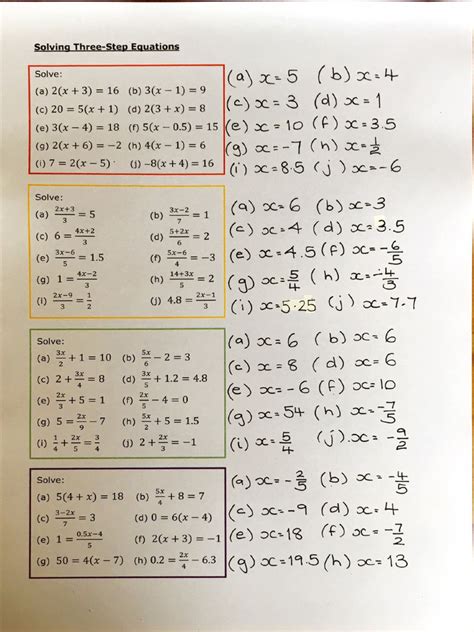 Solving Three-Step Equations
Solve:
(a) 2(x + 3) = 16 (b) 3(x − 1) = 9
(c) 20 = 5(x + 1) (d) 2(3 + x) = 8
(e) 3(x − 4) = 18 (f) 5(x − 0.5) = 15
(g) 2(x + 6) = −2 (h) 4(x − 1) = 6
(i) 7 = 2(x − 5) (j) −8(x + 4) = 16
(a) x = 5 (b) x = 4
(c) x = 3 (d) x = 1
(e) x = 10 (f) x = 3.5
(g) x = -7 (h) x = 1/2
(i) x = 8.5 (j) x = -6
Solve:
(a) 2x+3/3 = 5 (b) 3x−2/7 = 1
(c) 6 = 4x+2/3 (d) 5+2x/6 = 2
(e) 3x−6/5 = 1.5 (f) 5x−6/4 = −3
(g) 1 = 4x−2/3 (h) 14+3x/5 = 2
(i) 2x−9/3 = 1/2 (j) 4.8 = 2x−1/3
(a) x = 6 (b) x = 3
(c) x = 4 (d) x = 3.5
(e) x = 4.5 (f) x = -6/5
(g) x = 5/4 (h) x = -4/3
(i) x = 5.25 (j) x = 7.7
Solve:
(a) 3x/2 + 1 = 10 (b) 5x/6 − 2 = 3
(c) 2 + 3x/4 = 8 (d) 3x/5 + 1.2 = 4.8
(e) 2x/3 + 5 = 1 (f) 2x/5 − 4 = 0
(g) 5 = 2x/9 − 7 (h) 5x/2 + 5 = 1.5
(i) 1/4 + 2x/5 = 3/4 (j) 2 + 2x/3 = −1
(a) x = 6 (b) x = 6
(c) x = 8 (d) x = 6
(e) x = -6 (f) x = 10
(g) x = 54 (h) x = -7/5
(i) x = 5/4 (j). x = -9/2
Solve:
(a) 5(4 + x) = 18 (b) 5x/4 + 8 = 7
(c) 3−2x/7 = 3 (d) 0 = 6(x − 4)
(e) 1 = 0.5x−4/5 (f) 2(x + 3) = −1
(g) 50 = 4(x − 7) (h) 0.2 = 2x/4 − 6.3
(a) x = -2/5 (b) x = -4/5
(c) x = -9 (d) x = 4
(e) x = 18 (f) x = -7/2
(g) x = 19.5 (h) x = 13